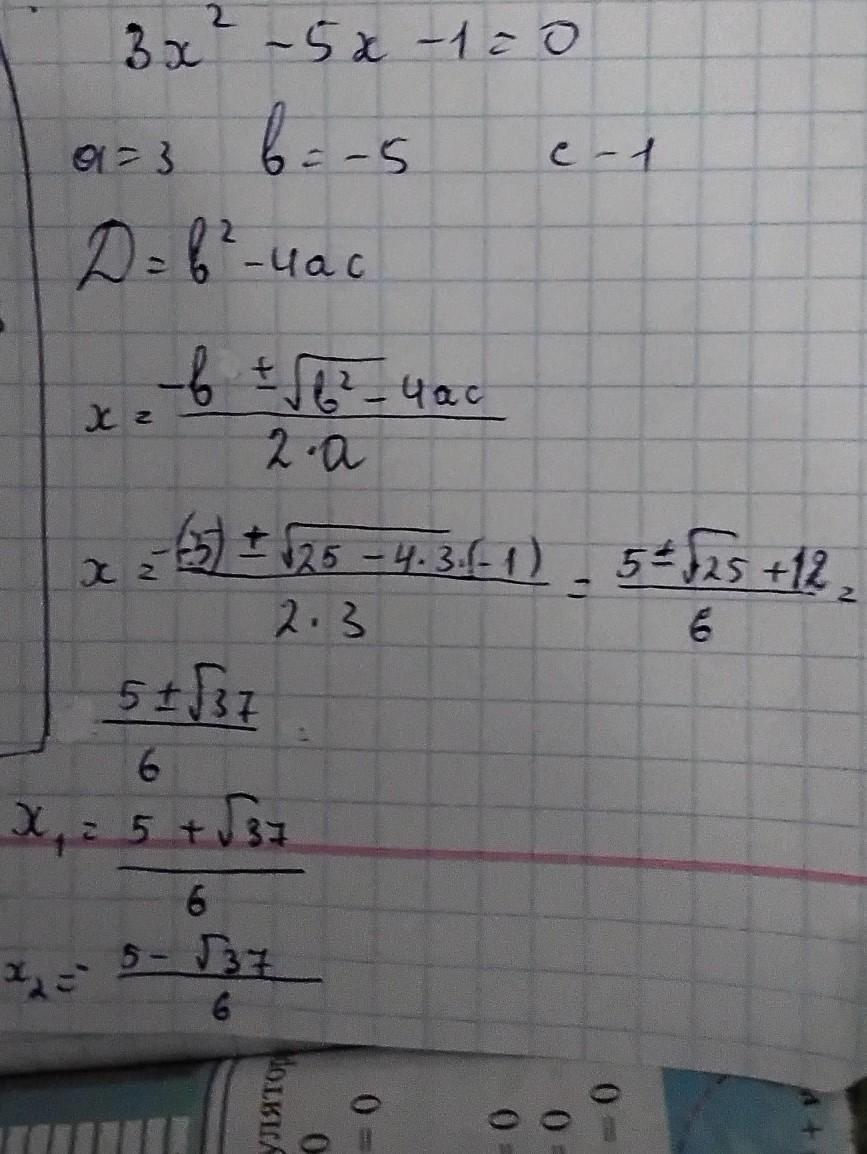 3x² - 5x - 1 = 0
a = 3 b = -5 c - 1
D = b² - 4ac
x = (-b ± √b² - 4ac) / (2 · a)
x = (-(-5) ± √25 - 4 · 3 · (-1)) / (2 · 3) = (5 ± √25 + 12) / 6 =
(5 ± √37) / 6
x₁ = (5 + √37) / 6
x₂ = (5 - √37) / 6
улятор
0
= 0
0
= 0
= 0